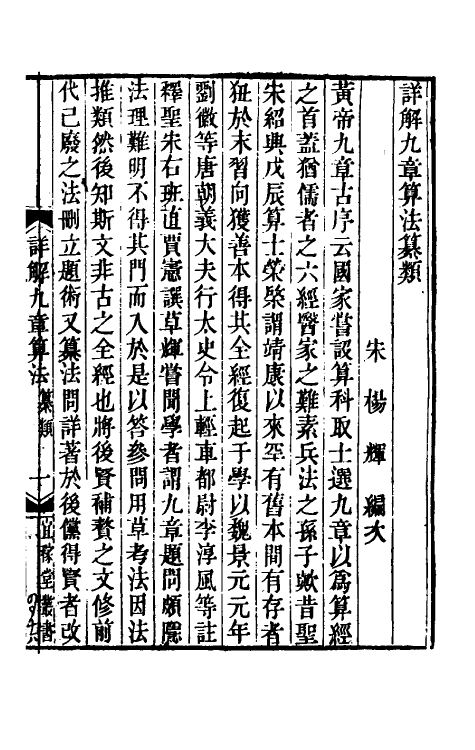 詳解九章算法纂類
宋楊輝編次
黃帝九章古序云國家嘗設算科取士選九章以爲算經
之首葢猶儒者之六經醫家之難素兵法之孫子歟昔聖
宋紹興戊辰算士榮棨謂靖康以來罕有舊本間有存者
狃於末習向獲善本得其全經復起于學以魏景元元年
劉徽等唐朝義大夫行太史令上輕車都尉李淳風等註
釋聖宋右班直賈憲譔草輝嘗聞學者謂九章題問頗隱
法理難明不得其門而入於是以答參問用草考法因法
推類然後知斯文非古之全經也將後賢補贅之文修前
代已廢之法刪立題術又纂法問詳著於後儻得賢者改
詳解九章算法 纂類 宜稼堂叢書